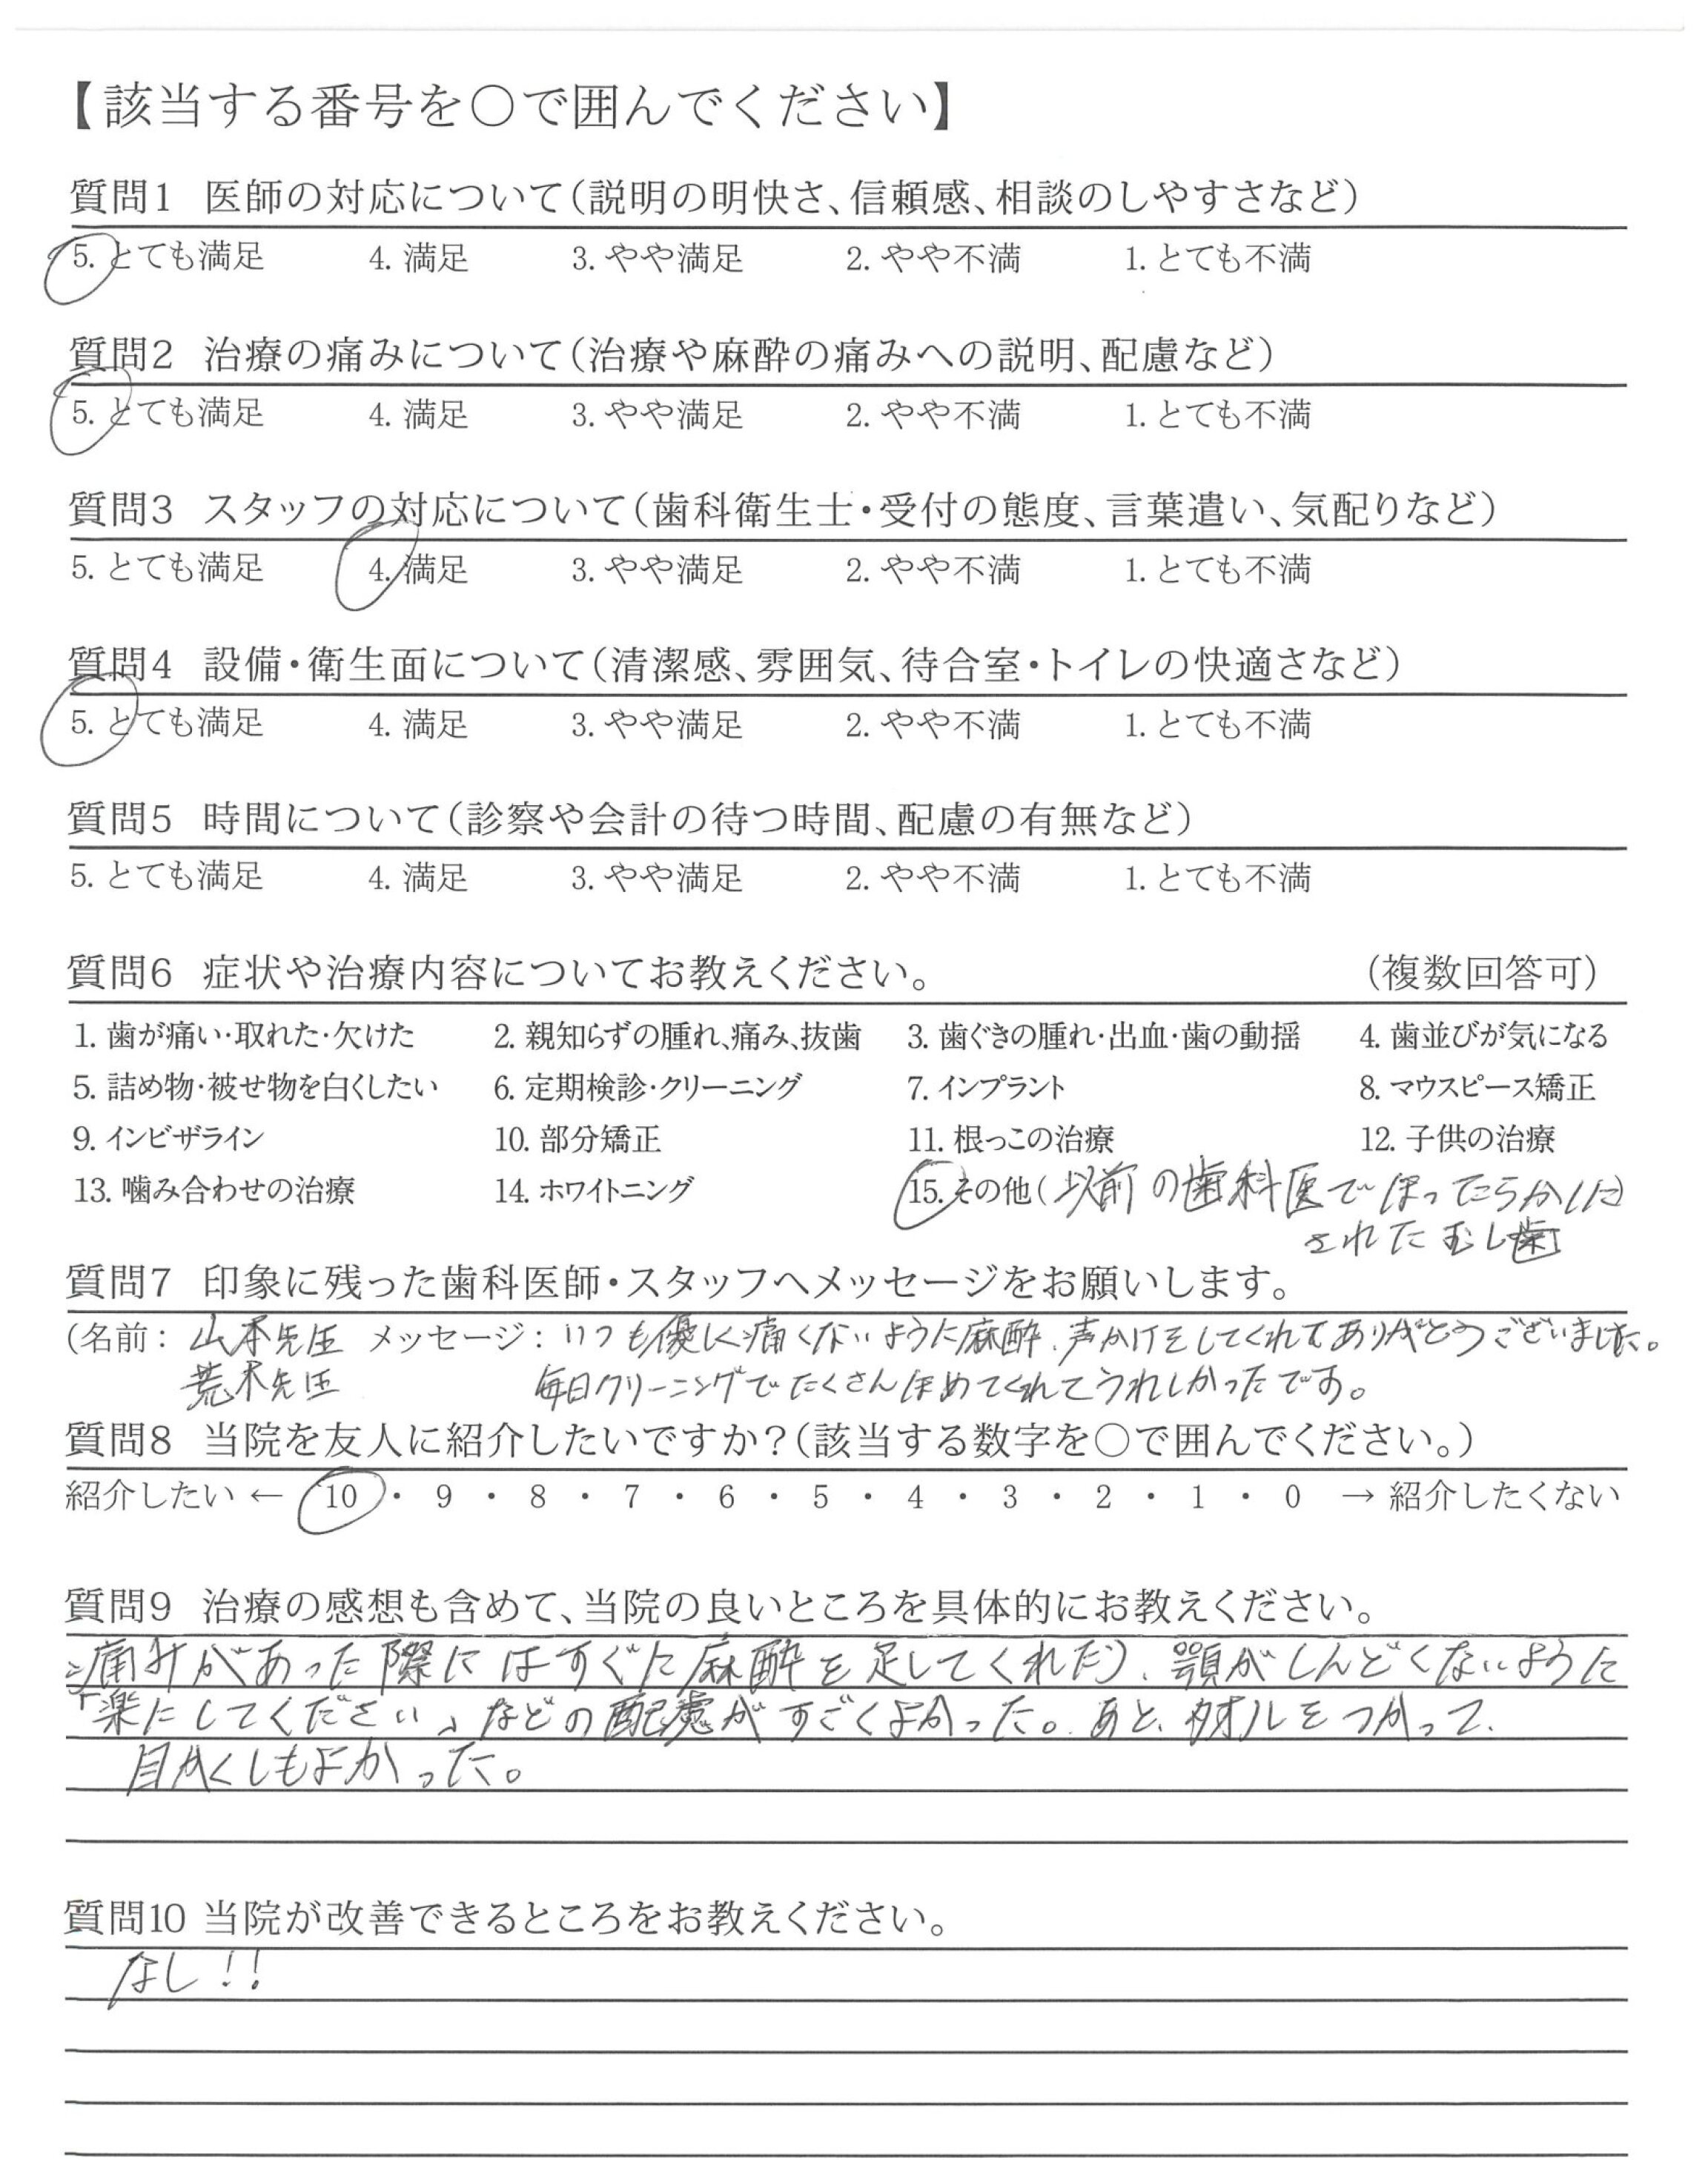 【該当する番号を○で囲んでください】
質問1 医師の対応について(説明の明快さ、信頼感、相談のしやすさなど)
5. とても満足 4. 満足 3. やや満足 2. やや不満 1. とても不満
質問2 治療の痛みについて(治療や麻酔の痛みへの説明、配慮など)
5. とても満足 4. 満足 3. やや満足 2. やや不満 1. とても不満
質問3 スタッフの対応について(歯科衛生士・受付の態度、言葉遣い、気配りなど)
5. とても満足 4. 満足 3. やや満足 2. やや不満 1. とても不満
質問4 設備・衛生面について(清潔感、雰囲気、待合室・トイレの快適さなど)
5. とても満足 4. 満足 3. やや満足 2. やや不満 1. とても不満
質問5 時間について(診察や会計の待つ時間、配慮の有無など)
5. とても満足 4. 満足 3. やや満足 2. やや不満 1. とても不満
質問6 症状や治療内容についてお教えください。 (複数回答可)
1. 歯が痛い・取れた・欠けた 2. 親知らずの腫れ、痛み、抜歯 3. 歯ぐきの腫れ・出血・歯の動揺 4. 歯並びが気になる
5. 詰め物・被せ物を白くしたい 6. 定期検診・クリーニング 7. インプラント 8. マウスピース矯正
9. インビザライン 10. 部分矯正 11. 根っこの治療 12. 子供の治療
13. 噛み合わせの治療 14. ホワイトニング 15. その他(以前の歯科医でほったらかしに
されたむし歯
質問7 印象に残った歯科医師・スタッフへメッセージをお願いします。
(名前: 山本先生 メッセージ: いつも優しく痛くないように麻酔、声かけをしてくれてありがとうございました。
荒木先生 毎日クリーニングでたくさんほめてくれてうれしかったです。
質問8 当院を友人に紹介したいですか?(該当する数字を○で囲んでください。)
紹介したい ← 10 ・ 9 ・ 8 ・ 7 ・ 6 ・ 5 ・ 4 ・ 3 ・ 2 ・ 1 ・ 0 → 紹介したくない
質問9 治療の感想も含めて、当院の良いところを具体的にお教えください。
痛みがあった際にはすぐに麻酔を足してくれたり、顎がしんどくないように
「楽にしてください」などの配慮がすごくよかった。あと、タオルをつかって、
目かくしもよかった。
質問10 当院が改善できるところをお教えください。
なし!!